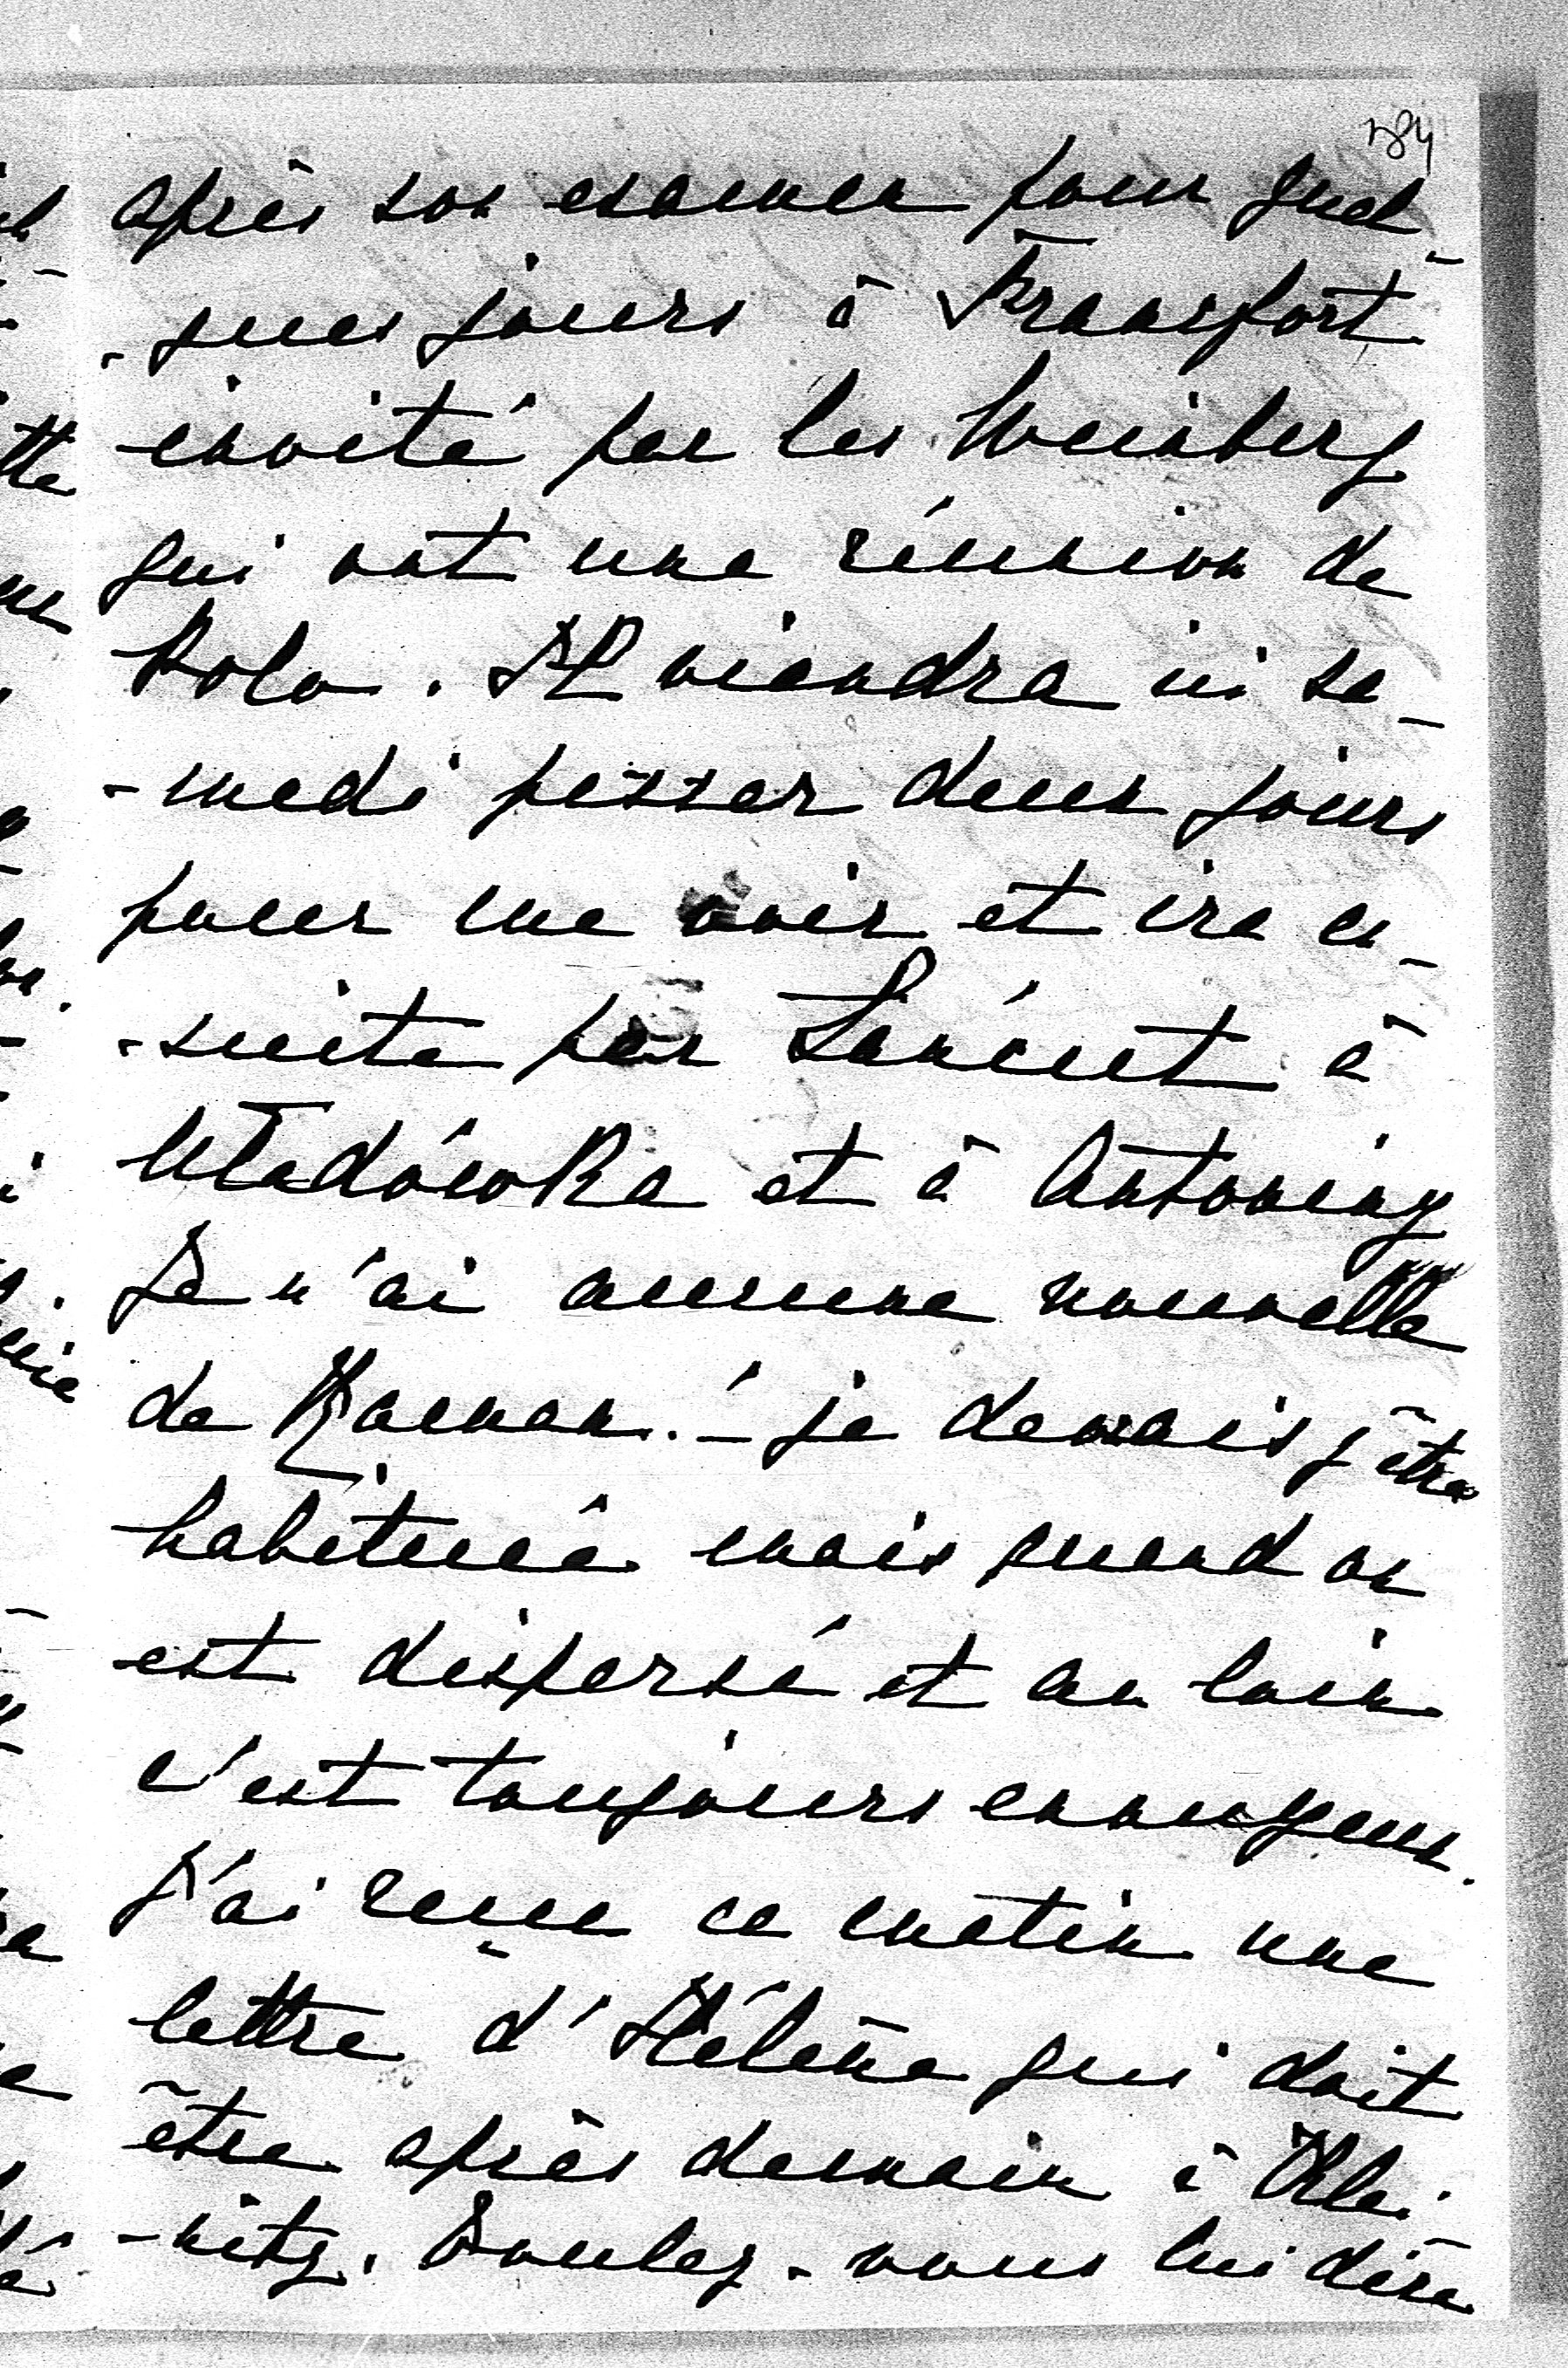 184
après son examen pour quel-
-ques jours à Francfort
invité par les Weinberg
qui ont une réunion de
Polo. Il viendra ici sa-
-medi passer deux jours
pour me voir et ira en-
-suite par Łańcut à
Władówka et à Antoniny
Je n'ai aucune nouvelle
de Roman. - je devrais y être
habituée mais quand on
est dispersé et au loin
c'est toujours ennuyeux.
J'ai reçu ce matin une
lettre d'Hélène qui doit
être après demain à Klei-
-nitz. Voulez-vous lui dire